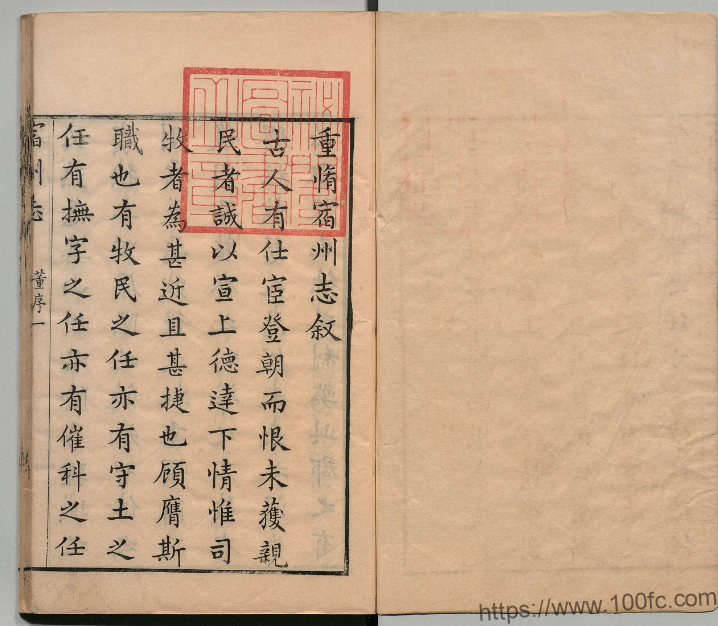 重脩宿州志叙
古人有仕宦登朝而恨未獲親
民者誠以宣上德達下情惟司
牧者為甚近且甚捷也顧膺斯
職也有牧民之任亦有守土之
任有撫字之任亦有催科之任
宿州志
董序一
https://www.100fc.com